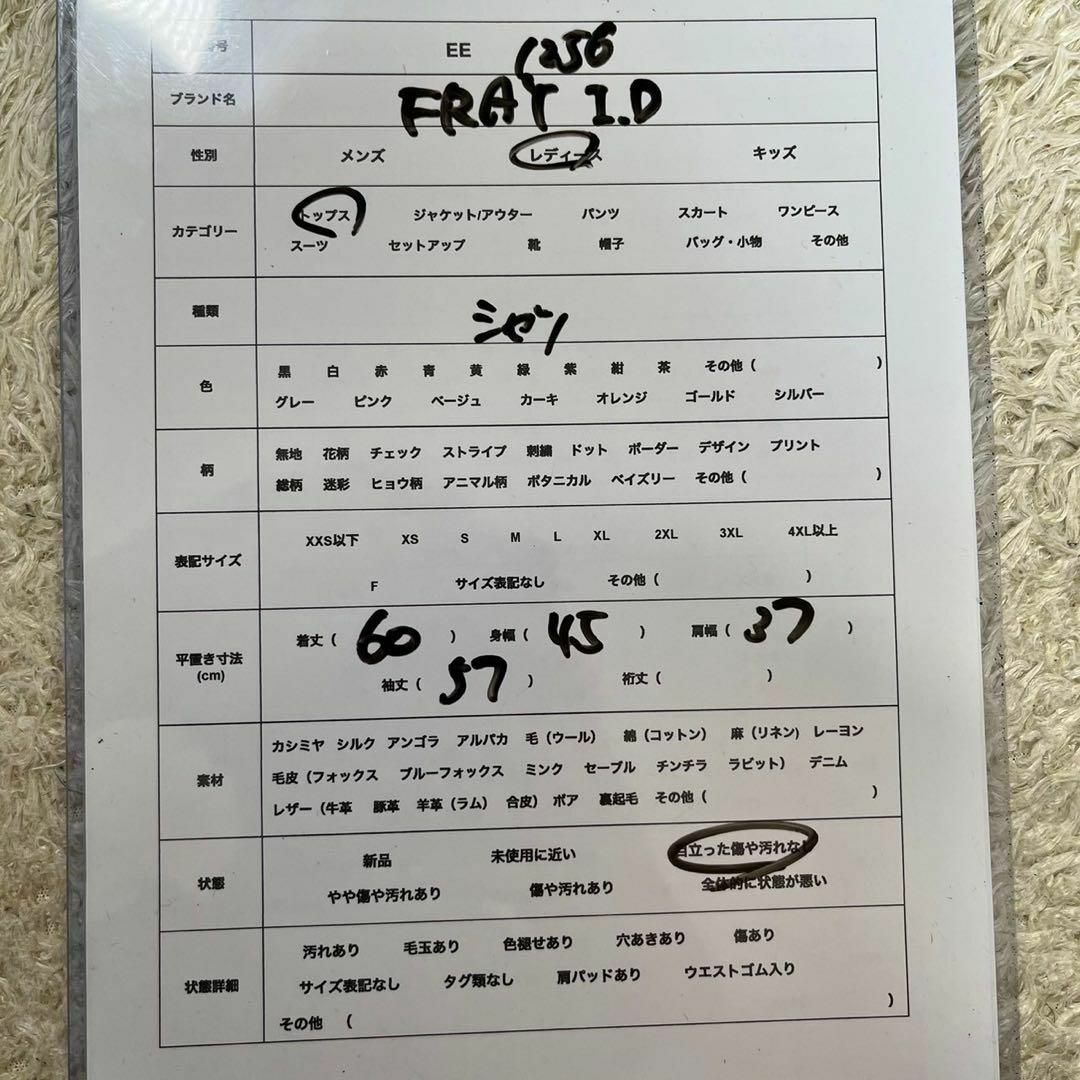 号 EE 1256
ブランド名 FRAY I.D
性別 メンズ レディース キッズ
カテゴリー トップス ジャケット/アウター パンツ スカート ワンピース
スーツ セットアップ 靴 帽子 バッグ・小物 その他
種類 シャツ
色 黒 白 赤 青 黄 緑 紫 紺 茶 その他 ( )
グレー ピンク ベージュ カーキ オレンジ ゴールド シルバー
柄 無地 花柄 チェック ストライプ 刺繍 ドット ボーダー デザイン プリント
総柄 迷彩 ヒョウ柄 アニマル柄 ボタニカル ペイズリー その他 ( )
表記サイズ XXS以下 XS S M L XL 2XL 3XL 4XL以上
F サイズ表記なし その他 ( )
平置き寸法 (cm) 着丈 ( 60 ) 身幅 ( 45 ) 肩幅 ( 37 )
袖丈 ( 57 ) 裄丈 ( )
素材 カシミヤ シルク アンゴラ アルパカ 毛 (ウール) 綿 (コットン) 麻 (リネン) レーヨン
毛皮 (フォックス ブルーフォックス ミンク セーブル チンチラ ラビット) デニム
レザー (牛革 豚革 羊革 (ラム) 合皮) ボア 裏起毛 その他 ( )
状態 新品 未使用に近い 目立った傷や汚れなし
やや傷や汚れあり 傷や汚れあり 全体的に状態が悪い
状態詳細 汚れあり 毛玉あり 色褪せあり 穴あきあり 傷あり
サイズ表記なし タグ類なし 肩パッドあり ウエストゴム入り
その他 ( )